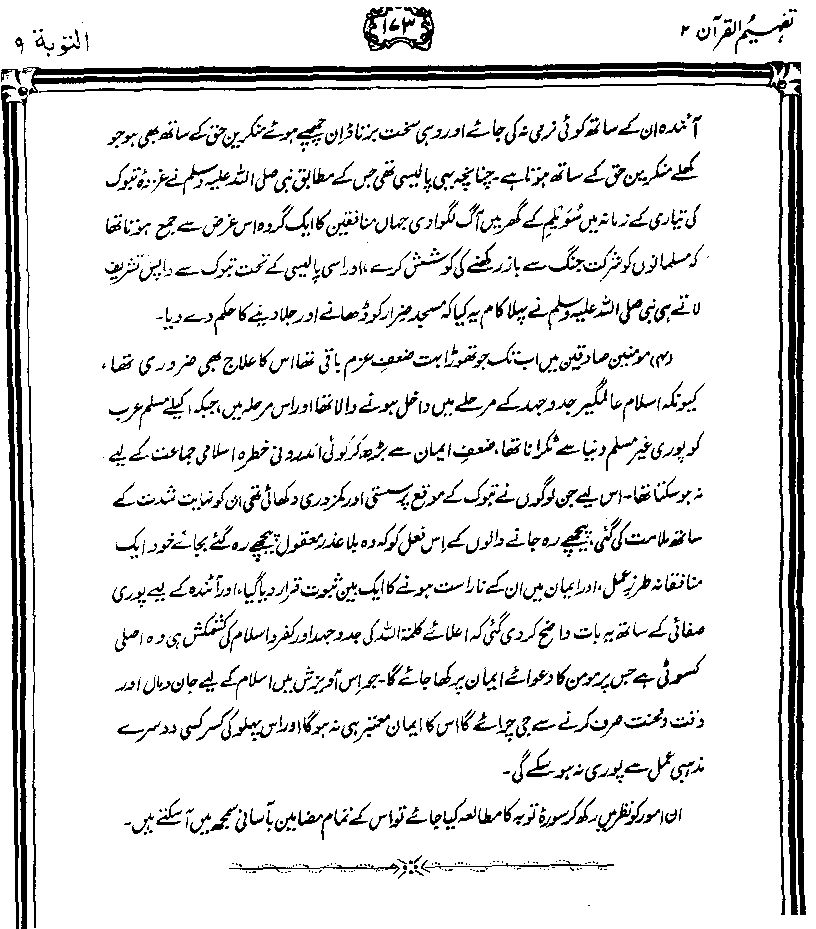 تفہیم القرآن ۲
۱۷۳
التوبۃ ۹
آئندہ ان کے ساتھ کوئی نرمی نہ کی جائے اور وہی سخت برتاؤ ان چھپے ہوئے منکرین حق کے ساتھ بھی ہو جو
کھلے منکرین حق کے ساتھ ہوتا ہے۔ چنانچہ یہی پالیسی تھی جس کے مطابق نبی صلی اللہ علیہ وسلم نے غزوۂ تبوک
کی تیاری کے زمانہ میں سُوَیلم کے گھر میں آگ لگوا دی جہاں منافقین کا ایک گروہ اس غرض سے جمع ہوتا تھا
کہ مسلمانوں کو شرکت جنگ سے باز رکھنے کی کوشش کرے، اور اسی پالیسی کے تحت تبوک سے واپس تشریف
لاتے ہی نبی صلی اللہ علیہ وسلم نے پہلا کام یہ کیا کہ مسجد ضرار کو ڈھانے اور جلا دینے کا حکم دے دیا۔
(۵) مومنین صادقین میں اب تک جو تھوڑا بہت ضعفِ عزم باقی تھا اس کا علاج بھی ضروری تھا،
کیونکہ اسلام عالمگیر جدوجہد کے مرحلے میں داخل ہونے والا تھا اور اس مرحلہ میں، جبکہ اکیلے مسلم عرب
کو پوری غیر مسلم دنیا سے ٹکرانا تھا، ضعفِ ایمان سے بڑھ کر کوئی اندرونی خطرہ اسلامی جماعت کے لیے
نہ ہو سکتا تھا۔ اس لیے جن لوگوں نے تبوک کے موقع پر سستی اور کمزوری دکھائی تھی ان کو نہایت شدت کے
ساتھ ملامت کی گئی، پیچھے رہ جانے والوں کے اِس فعل کو کہ وہ بلا عذر معقول پیچھے رہ گئے بجائے خود ایک
منافقانہ طرزِ عمل، اور ایمان میں ان کے ناراست ہونے کا ایک بین ثبوت قرار دیا گیا، اور آئندہ کے لیے پوری
صفائی کے ساتھ یہ بات واضح کر دی گئی کہ اعلائے کلمۃ اللہ کی جدوجہد اور کفر و اسلام کی کشمکش ہی وہ اصلی
کسوٹی ہے جس پر مومن کا دعوائے ایمان پرکھا جائے گا۔ جو اِس آویزش میں اسلام کے لیے جان و مال اور
وقت و محنت صرف کرنے سے جی چرائے گا اس کا ایمان معتبر ہی نہ ہوگا اور اس پہلو کی کسر کسی دوسرے
مذہبی عمل سے پوری نہ ہو سکے گی۔
ان امور کو نظر میں رکھ کر سورۂ توبہ کا مطالعہ کیا جائے تو اس کے تمام مضامین بآسانی سمجھ میں آ سکتے ہیں۔